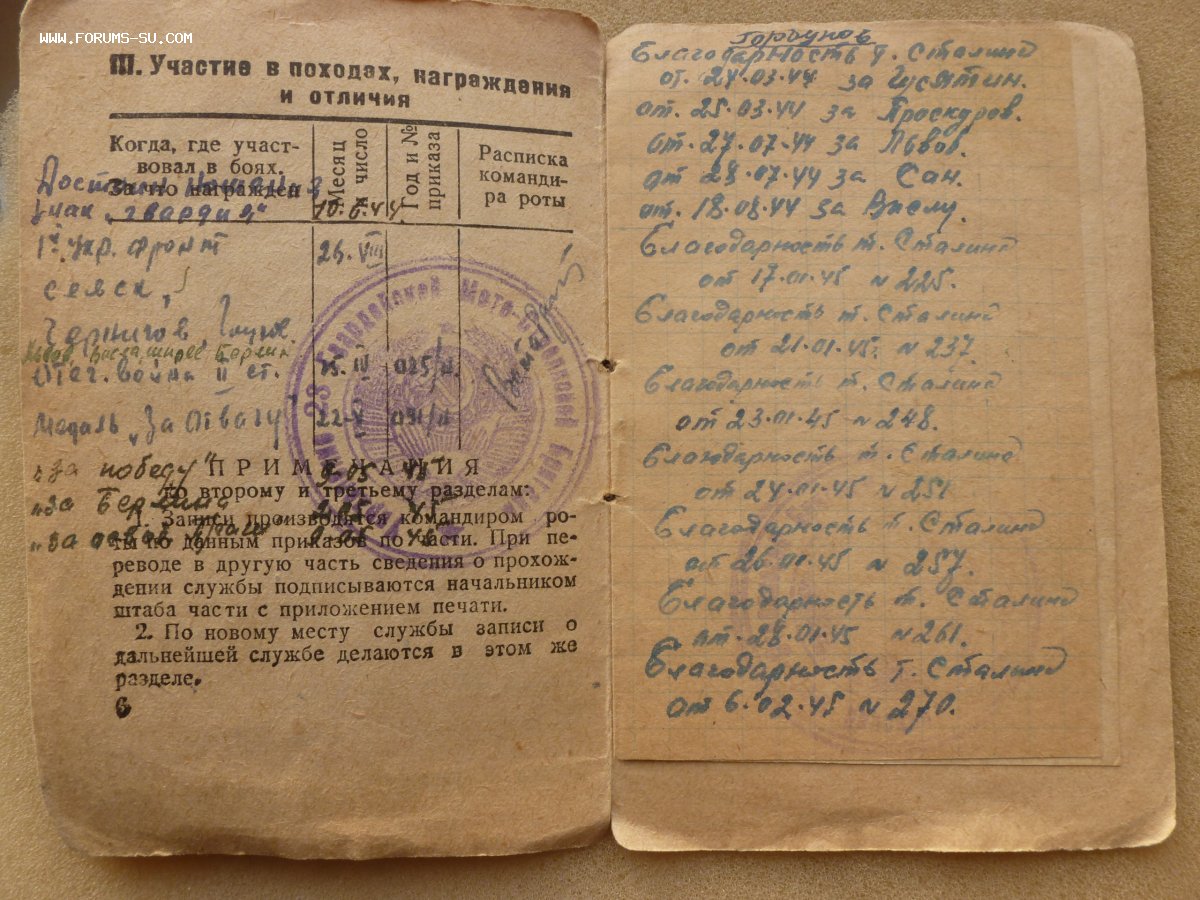 WWW.FORUMS-SU.COM
III. Участие в походах, награждения
и отличия
Когда, где участ-
вовал в боях.
За что награжден
Месяц
и число
Год и №
приказа
Расписка
команди-
ра роты
знак „гвардия“ 10.6.44
1й Укр. фронт 25.VIII
севск,
Чернигов,
Львов, Берлин
Отеч. война II ст. 25.IV 025/н.
Медаль „За отвагу“ 22-V
„за победу“ 9-05 45
ПРИМЕЧАНИЯ
ко второму и третьему разделам:
„за Берлин 2.05 45
1. Записи производятся командиром ро-
ты по данным приказов по части. При пе-
реводе в другую часть сведения о прохож-
дении службы подписываются начальником
штаба части с приложением печати.
2. По новому месту службы записи о
дальнейшей службе делаются в этом же
разделе.
6
23 Гвардейской Мото-Стрелковой Бригады
Горбунов
Благодарность т. Сталина
от. 24.03.44 за Гусятин.
от. 25.03.44 за Проскуров.
от. 27.07.44 за Львов.
от 28.07.44 за Сан.
от. 18.08.44 за Вислу.
Благодарность т. Сталина
от 17.01.45 № 225.
Благодарность т. Сталина
от 21.01.45. № 237.
Благодарность т. Сталина
от 23.01.45 № 248.
Благодарность т. Сталина
от 24.01.45 № 251
Благодарность т. Сталина
от 26.01.45 № 257.
Благодарность т. Сталина
от. 28.01.45 № 261.
Благодарность т. Сталина
от 6.02.45 № 270.